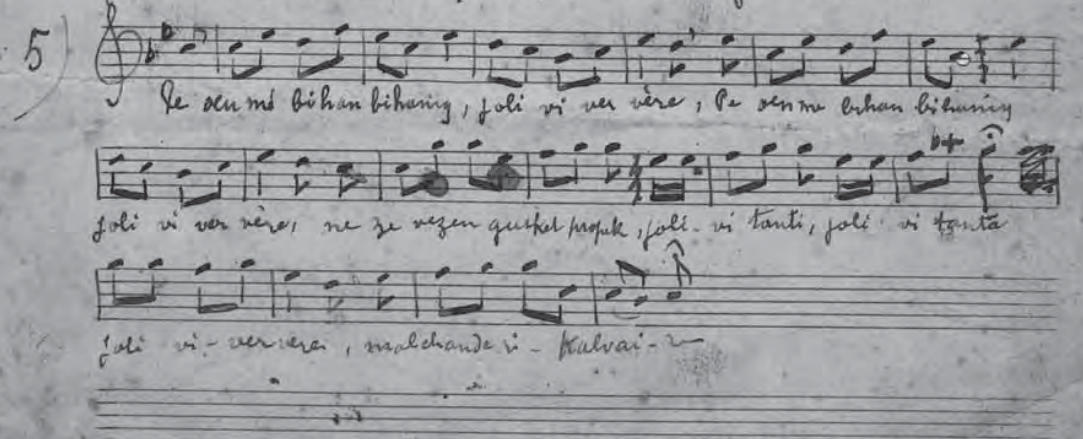 5)
Pe oen me bihan bihanig, joli vi ver vère, Pe oen me bihan bihanig
joli vi ver vère, ne ze vezen gusket propek, joli-vi tanti, joli vi tanta
joli vi-ver vere,